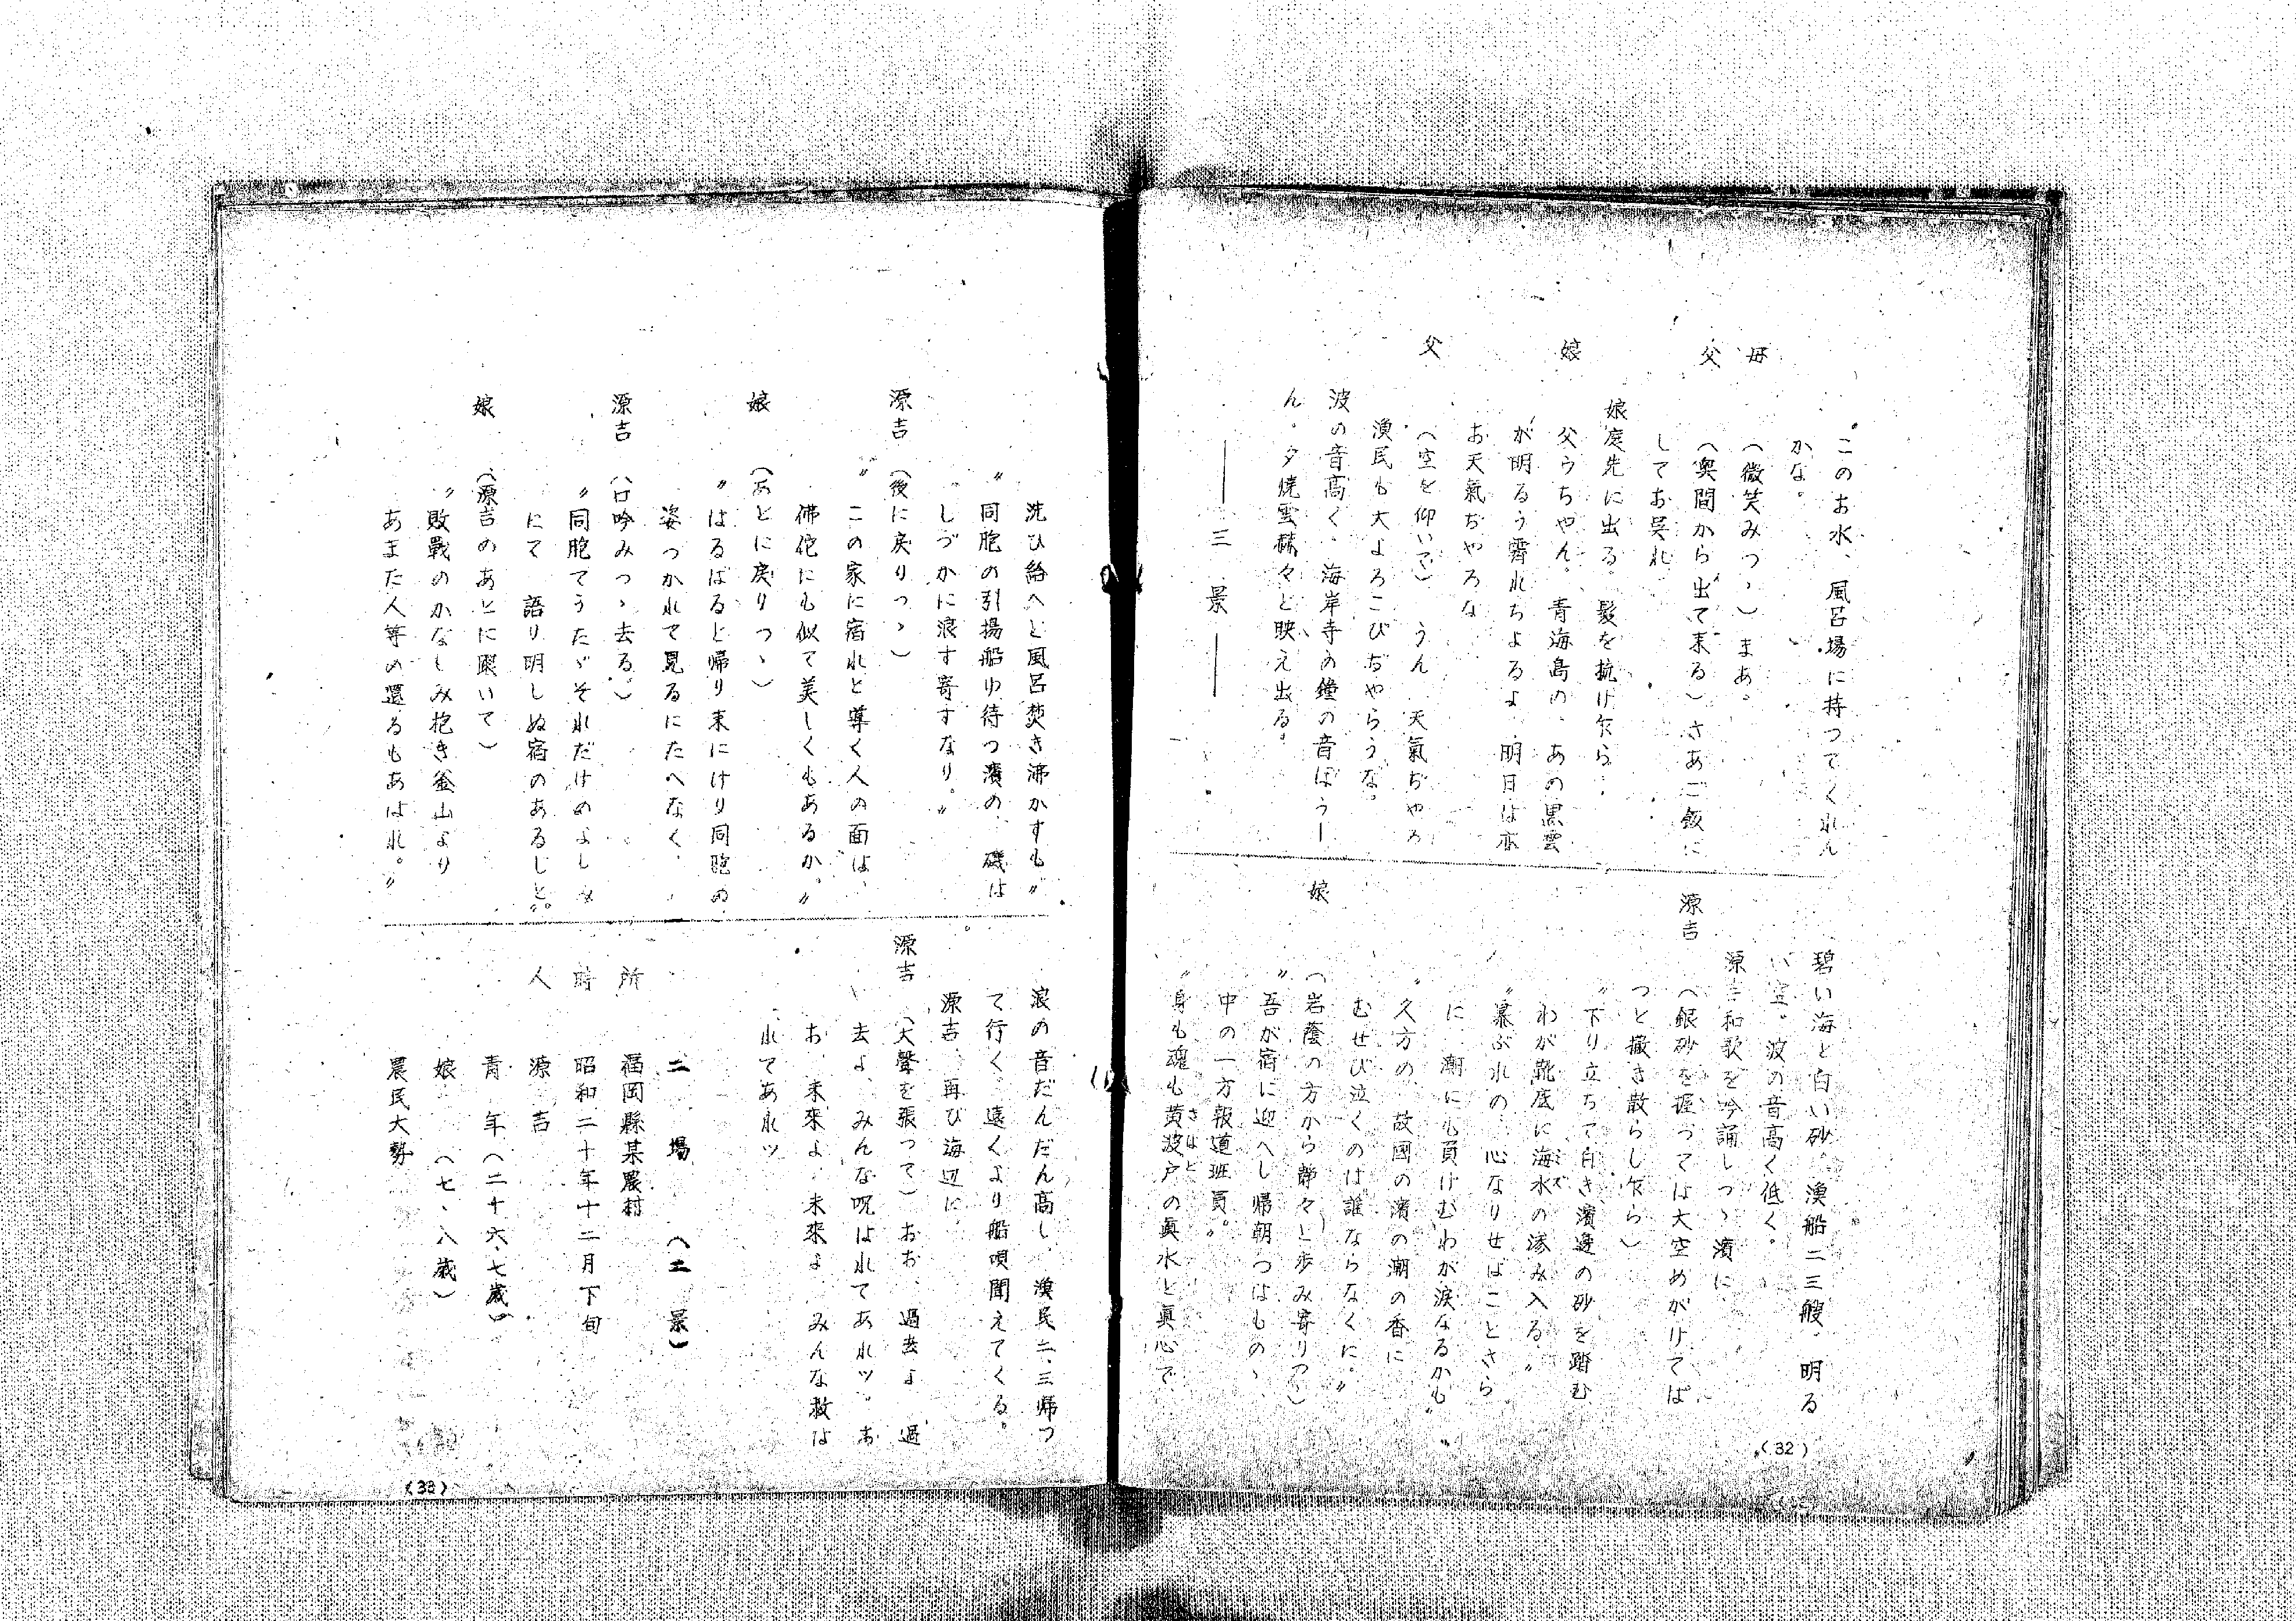 このお水、風呂場に持つてくれん
かな。
母　（微笑みつゝ）まあ。
父　（奥間から出て来る）さあご飯に
してお呉れ
娘庭先に出る。髪を梳け乍ら、
娘　父うちやん。青海島の、あの黒雲
が明るう霽れちよるよ、明日は亦
お天氣ぢやろな
父　（空を仰いで）うん　天氣ぢやろ
漁民も大よろこびぢやらうな。
波の音高く、海岸寺の鐘の音ぼうー
ん。夕焼雲赫々と映え出る。
――三　景――
碧い海と白い砂。漁船二三艘、明る
い空。波の音高く低く。
源吉和歌を吟誦しつゝ濱に
源吉　（銀砂を握つては大空めがけてぱ
つと撒き散らし乍ら）
〃下り立ちて白き濱邊の砂を踏む
わが靴底に海水の滲み入る。〃
〃暴ぶれの、心なりせばことさら
に　潮にも負けむわが涙なるかも〃
〃久方の　故國の濱の潮の香に
むせび泣くのは誰ならなくに。〃
娘　（岩蔭の方から静々と歩み寄りつゝ）
〃吾が宿に迎へし帰朝つはもの、
中の一方報道班員。〃
〃身も魂も黄波戸の眞水と眞心で
きはと
(32)
洗ひ給へと風呂焚き沸かすも〃
〃同胞の引揚船ゆ待つ濱の、磯は
しづかに浪す寄すなり。〃
源吉　（後に戻りつゝ）
〃この家に宿れと導く人の面は、
佛佗にも似て美しくもあるか。〃
娘　（あとに戻りつゝ）
〃はるばると帰り来にけり同胞の
姿つかれて見るにたへなく、
源吉　（口吟みつゝ去る。）
〃同胞てうたゞそれだけのよしみ
にて　語り明しぬ宿のあるじと。〃
娘　（源吉のあとに蹤いて）
〃敗戰のかなしみ抱き釜山より
あまた人等の還るもあはれ。〃
浪の音だんだん高し、漁民二、三帰つ
て行く。遠くより船唄聞えてくる。
源吉、再び海辺に、
源吉　（大聲を張つて）おお、過去よ　過
去よ、みんな呪はれてあれッ。お
お、未來よ、未來よ　みんな救は
れてあれッ
二　場　（二　景）
所　福岡縣某農村
時　昭和二十年十二月下旬
人　源　吉
青　年（二十六、七歳）
娘　（七、八歳）
農民大勢
(33)